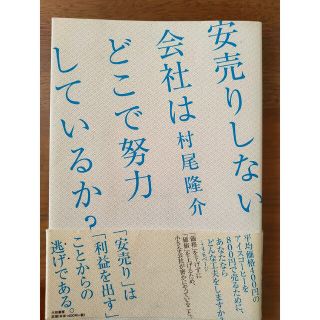 安売りしない
会社は
どこで努力
しているか?
村尾隆介
平均価格400円の
アイスコーヒーを
800円で売るために、
あなたなら
どんな工夫をしますか?
「安売り」は
「利益を出す」
ことからの
逃げである。
大和書房